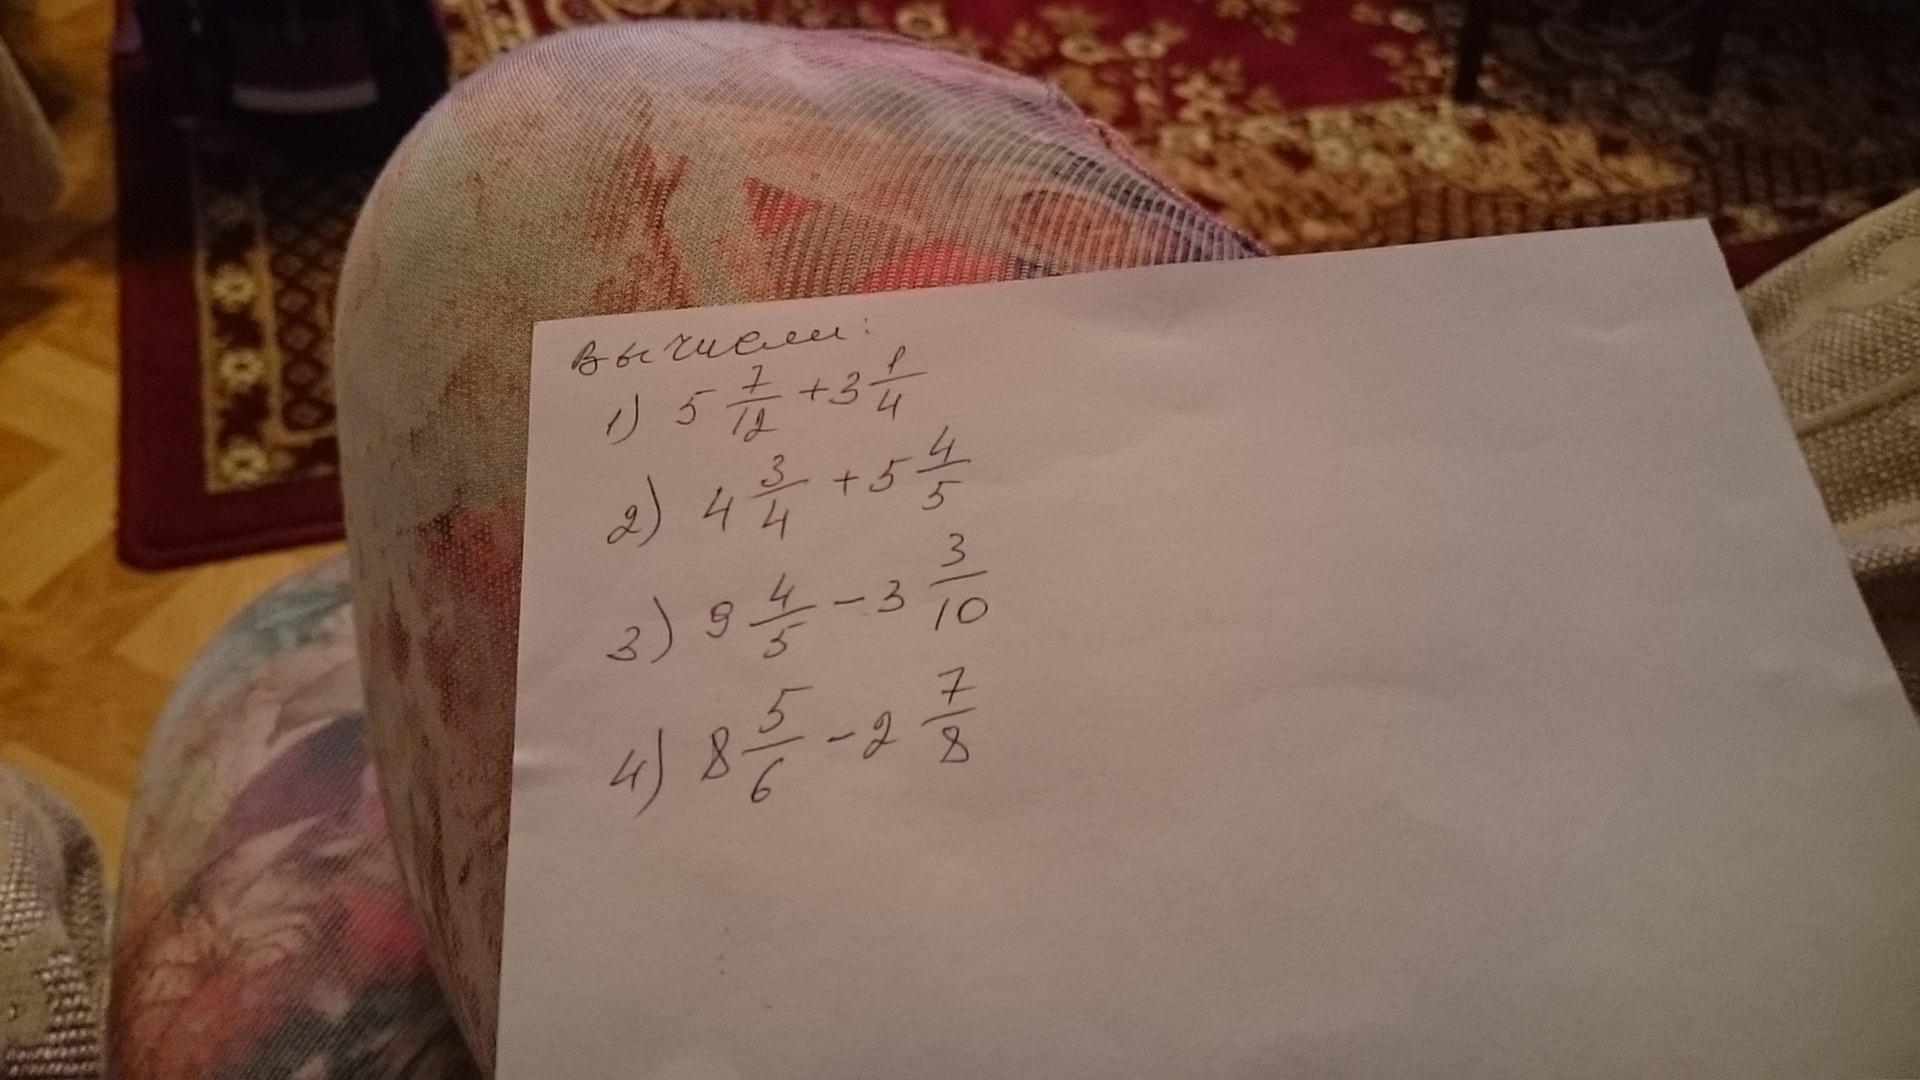 Вычисли:
1) 5 7/12 + 3 1/4
2) 4 3/4 + 5 4/5
3) 9 4/5 - 3 3/10
4) 8 5/6 - 2 7/8